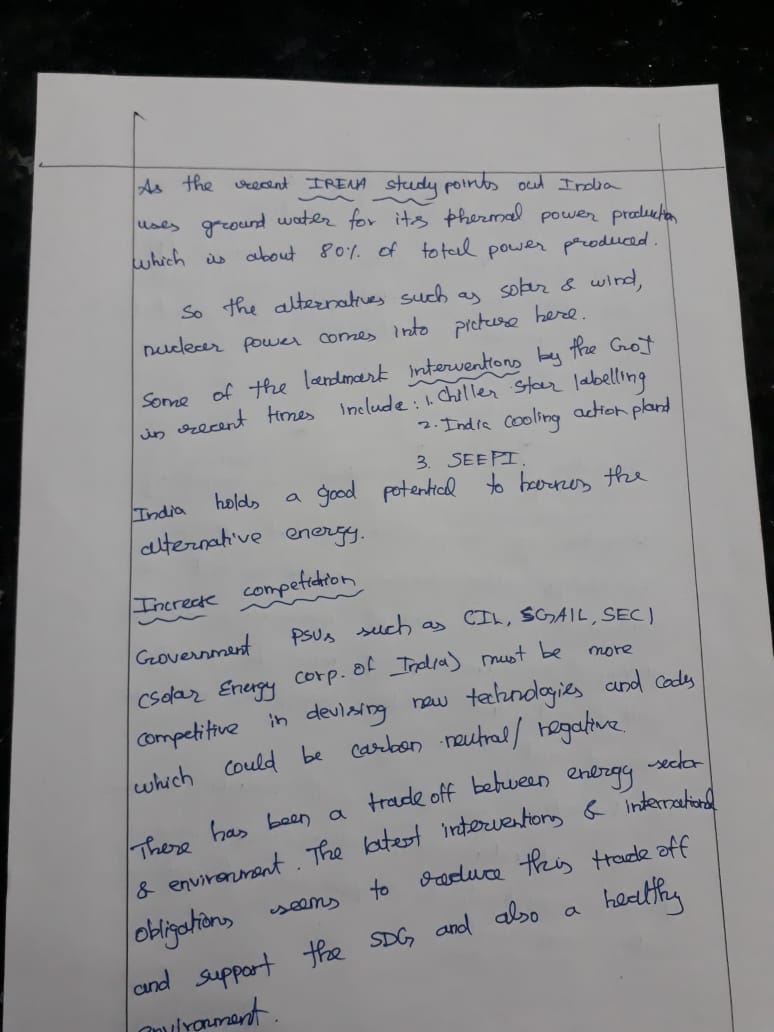 As the recent IRENA study points out India
uses ground water for its thermal power production
which is about 80% of total power produced.
So the alternatives such as solar & wind,
nuclear power comes into picture here.
Some of the landmark interventions by the GoI
in recent times include: 1. Chiller Star labelling
2. India Cooling action pland
3. SEEPI.
India holds a good potential to harness the
alternative energy.
Increase competition
Government PSUs such as CIL, SGAIL, SECI
(Solar Energy corp. of India) must be more
competitive in devising new technologies and codes
which could be carbon neutral/ negative.
There has been a trade off between energy sector
& environment. The latest interventions & international
obligations seems to reduce this trade off
and support the SDG and also a healthy
environment.